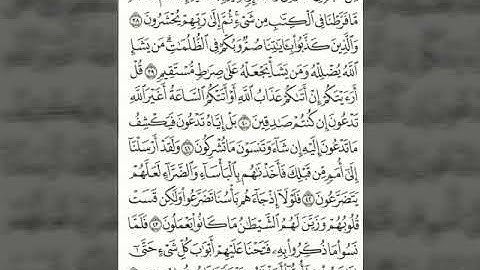 مَّا فَرَّطْنَا فِي ٱلْكِتَٰبِ مِن شَيْءٍ ثُمَّ إِلَىٰ رَبِّهِمْ يُحْشَرُونَ ٣٨
وَٱلَّذِينَ كَذَّبُوا۟ بِـَٔايَٰتِنَا صُمٌّ وَبُكْمٌ فِي ٱلظُّلُمَٰتِ مَن يَشَإِ
ٱللَّهُ يُضْلِلْهُ وَمَن يَشَأْ يَجْعَلْهُ عَلَىٰ صِرَٰطٍ مُّسْتَقِيمٍ ٣٩ قُلْ
أَرَءَيْتَكُمْ إِنْ أَتَىٰكُمْ عَذَابُ ٱللَّهِ أَوْ أَتَتْكُمُ ٱلسَّاعَةُ أَغَيْرَ ٱللَّهِ
تَدْعُونَ إِن كُنتُمْ صَٰدِقِينَ ٤٠ بَلْ إِيَّاهُ تَدْعُونَ فَيَكْشِفُ
مَا تَدْعُونَ إِلَيْهِ إِن شَآءَ وَتَنسَوْنَ مَا تُشْرِكُونَ ٤١ وَلَقَدْ أَرْسَلْنَآ
إِلَىٰٓ أُمَمٍ مِّن قَبْلِكَ فَأَخَذْنَٰهُم بِٱلْبَأْسَآءِ وَٱلضَّرَّآءِ لَعَلَّهُمْ
يَتَضَرَّعُونَ ٤٢ فَلَوْلَآ إِذْ جَآءَهُم بَأْسُنَا تَضَرَّعُوا۟ وَلَٰكِن قَسَتْ
قُلُوبُهُمْ وَزَيَّنَ لَهُمُ ٱلشَّيْطَٰنُ مَا كَانُوا۟ يَعْمَلُونَ ٤٣ فَلَمَّا
نَسُوا۟ مَا ذُكِّرُوا۟ بِهِۦ فَتَحْنَا عَلَيْهِمْ أَبْوَٰبَ كُلِّ شَيْءٍ حَتَّىٰٓ